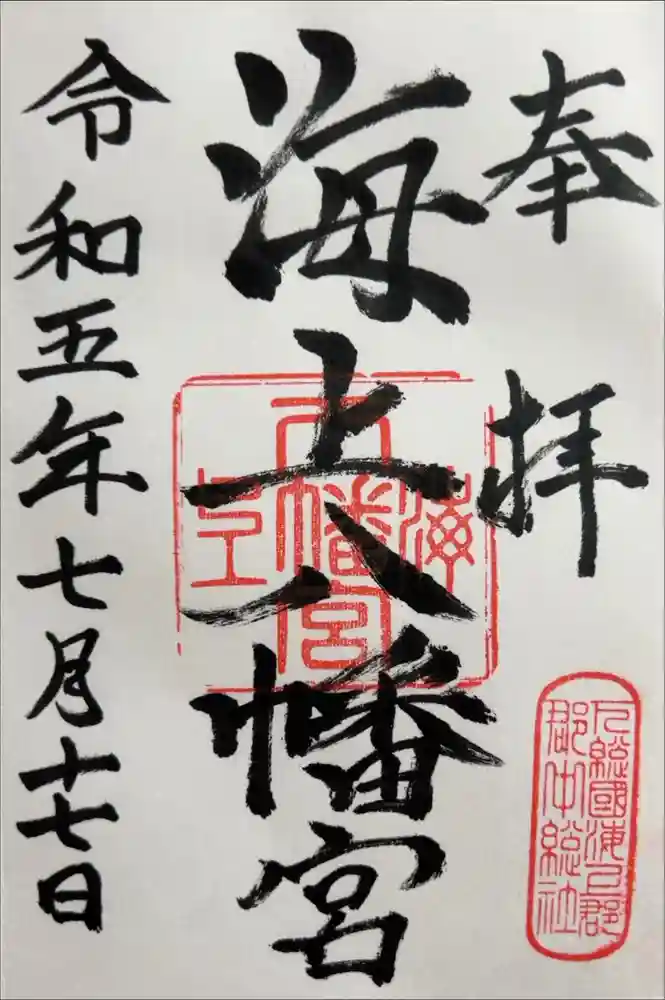 奉拝
海上八幡宮
令和五年七月十七日
下総國海上郡
郡中総社